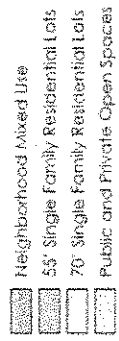 Neighborhood Mixed Use
55' Single Family Residential Lots
70' Single Family Residential Lots
Public and Private Open Spaces